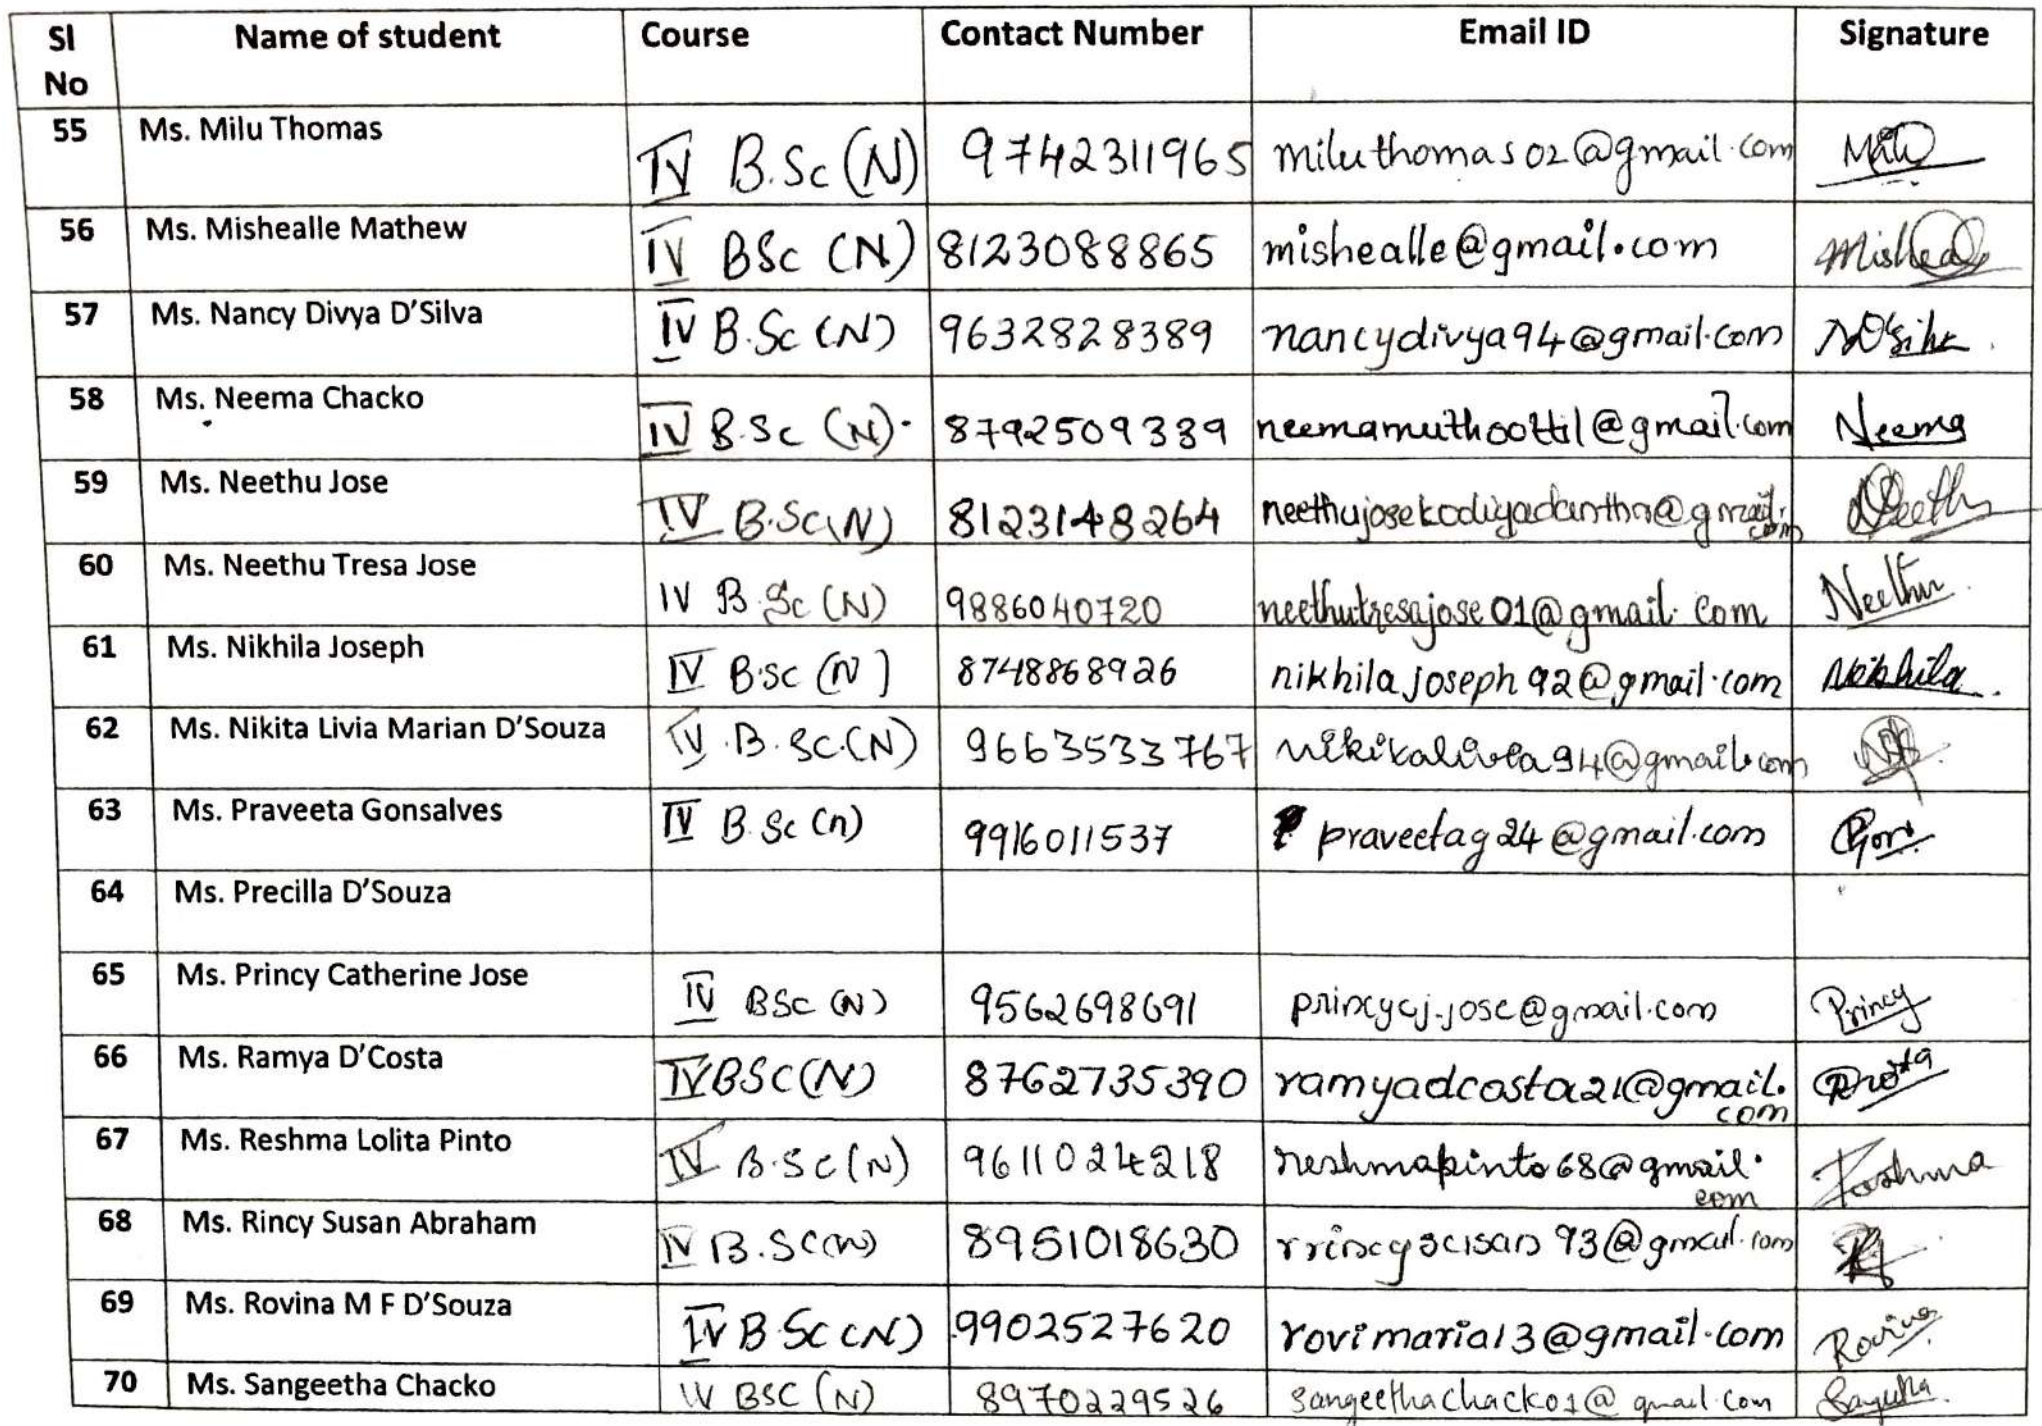 Sl No Name of student Course Contact Number Email ID Signature
55 Ms. Milu Thomas IV B.Sc (N) 9742311965 miluthomas02@gmail.com Milu
56 Ms. Mishealle Mathew IV BSc (N) 8123088865 mishealle@gmail.com
57 Ms. Nancy Divya D'Silva IV B.Sc (N) 9632828389 nancydivya94@gmail.com
58 Ms. Neema Chacko IV B.Sc (N). 8792509339 neemamuthoottil@gmail.com Neema
59 Ms. Neethu Jose IV B.Sc(N) 8123148264 Neethu
60 Ms. Neethu Tresa Jose IV B.Sc (N) 9886040720 neethutresajose01@gmail.com Neethu
61 Ms. Nikhila Joseph IV B.Sc (N] 8748868926 nikhilajoseph92@gmail.com Nikhila.
62 Ms. Nikita Livia Marian D'Souza IV B.Sc.(N) 9663533767
63 Ms. Praveeta Gonsalves IV B.Sc (n) 9916011537 praveetag24@gmail.com
64 Ms. Precilla D'Souza
65 Ms. Princy Catherine Jose IV BSc (N) 9562698691 princycj.jose@gmail.com Princy
66 Ms. Ramya D'Costa IV BSC(N) 8762735390 ramyadcosta21@gmail.com
67 Ms. Reshma Lolita Pinto IV B.Sc(N) 9611024218 reshmapinto68@gmail.com Reshma
68 Ms. Rincy Susan Abraham IV B.Sc(N) 8951018630
69 Ms. Rovina M F D'Souza IV B.Sc(N) 9902527620 rovimaria13@gmail.com Rovina
70 Ms. Sangeetha Chacko IV BSC (N) 8970229526 sangeethachacko1@gmail.com